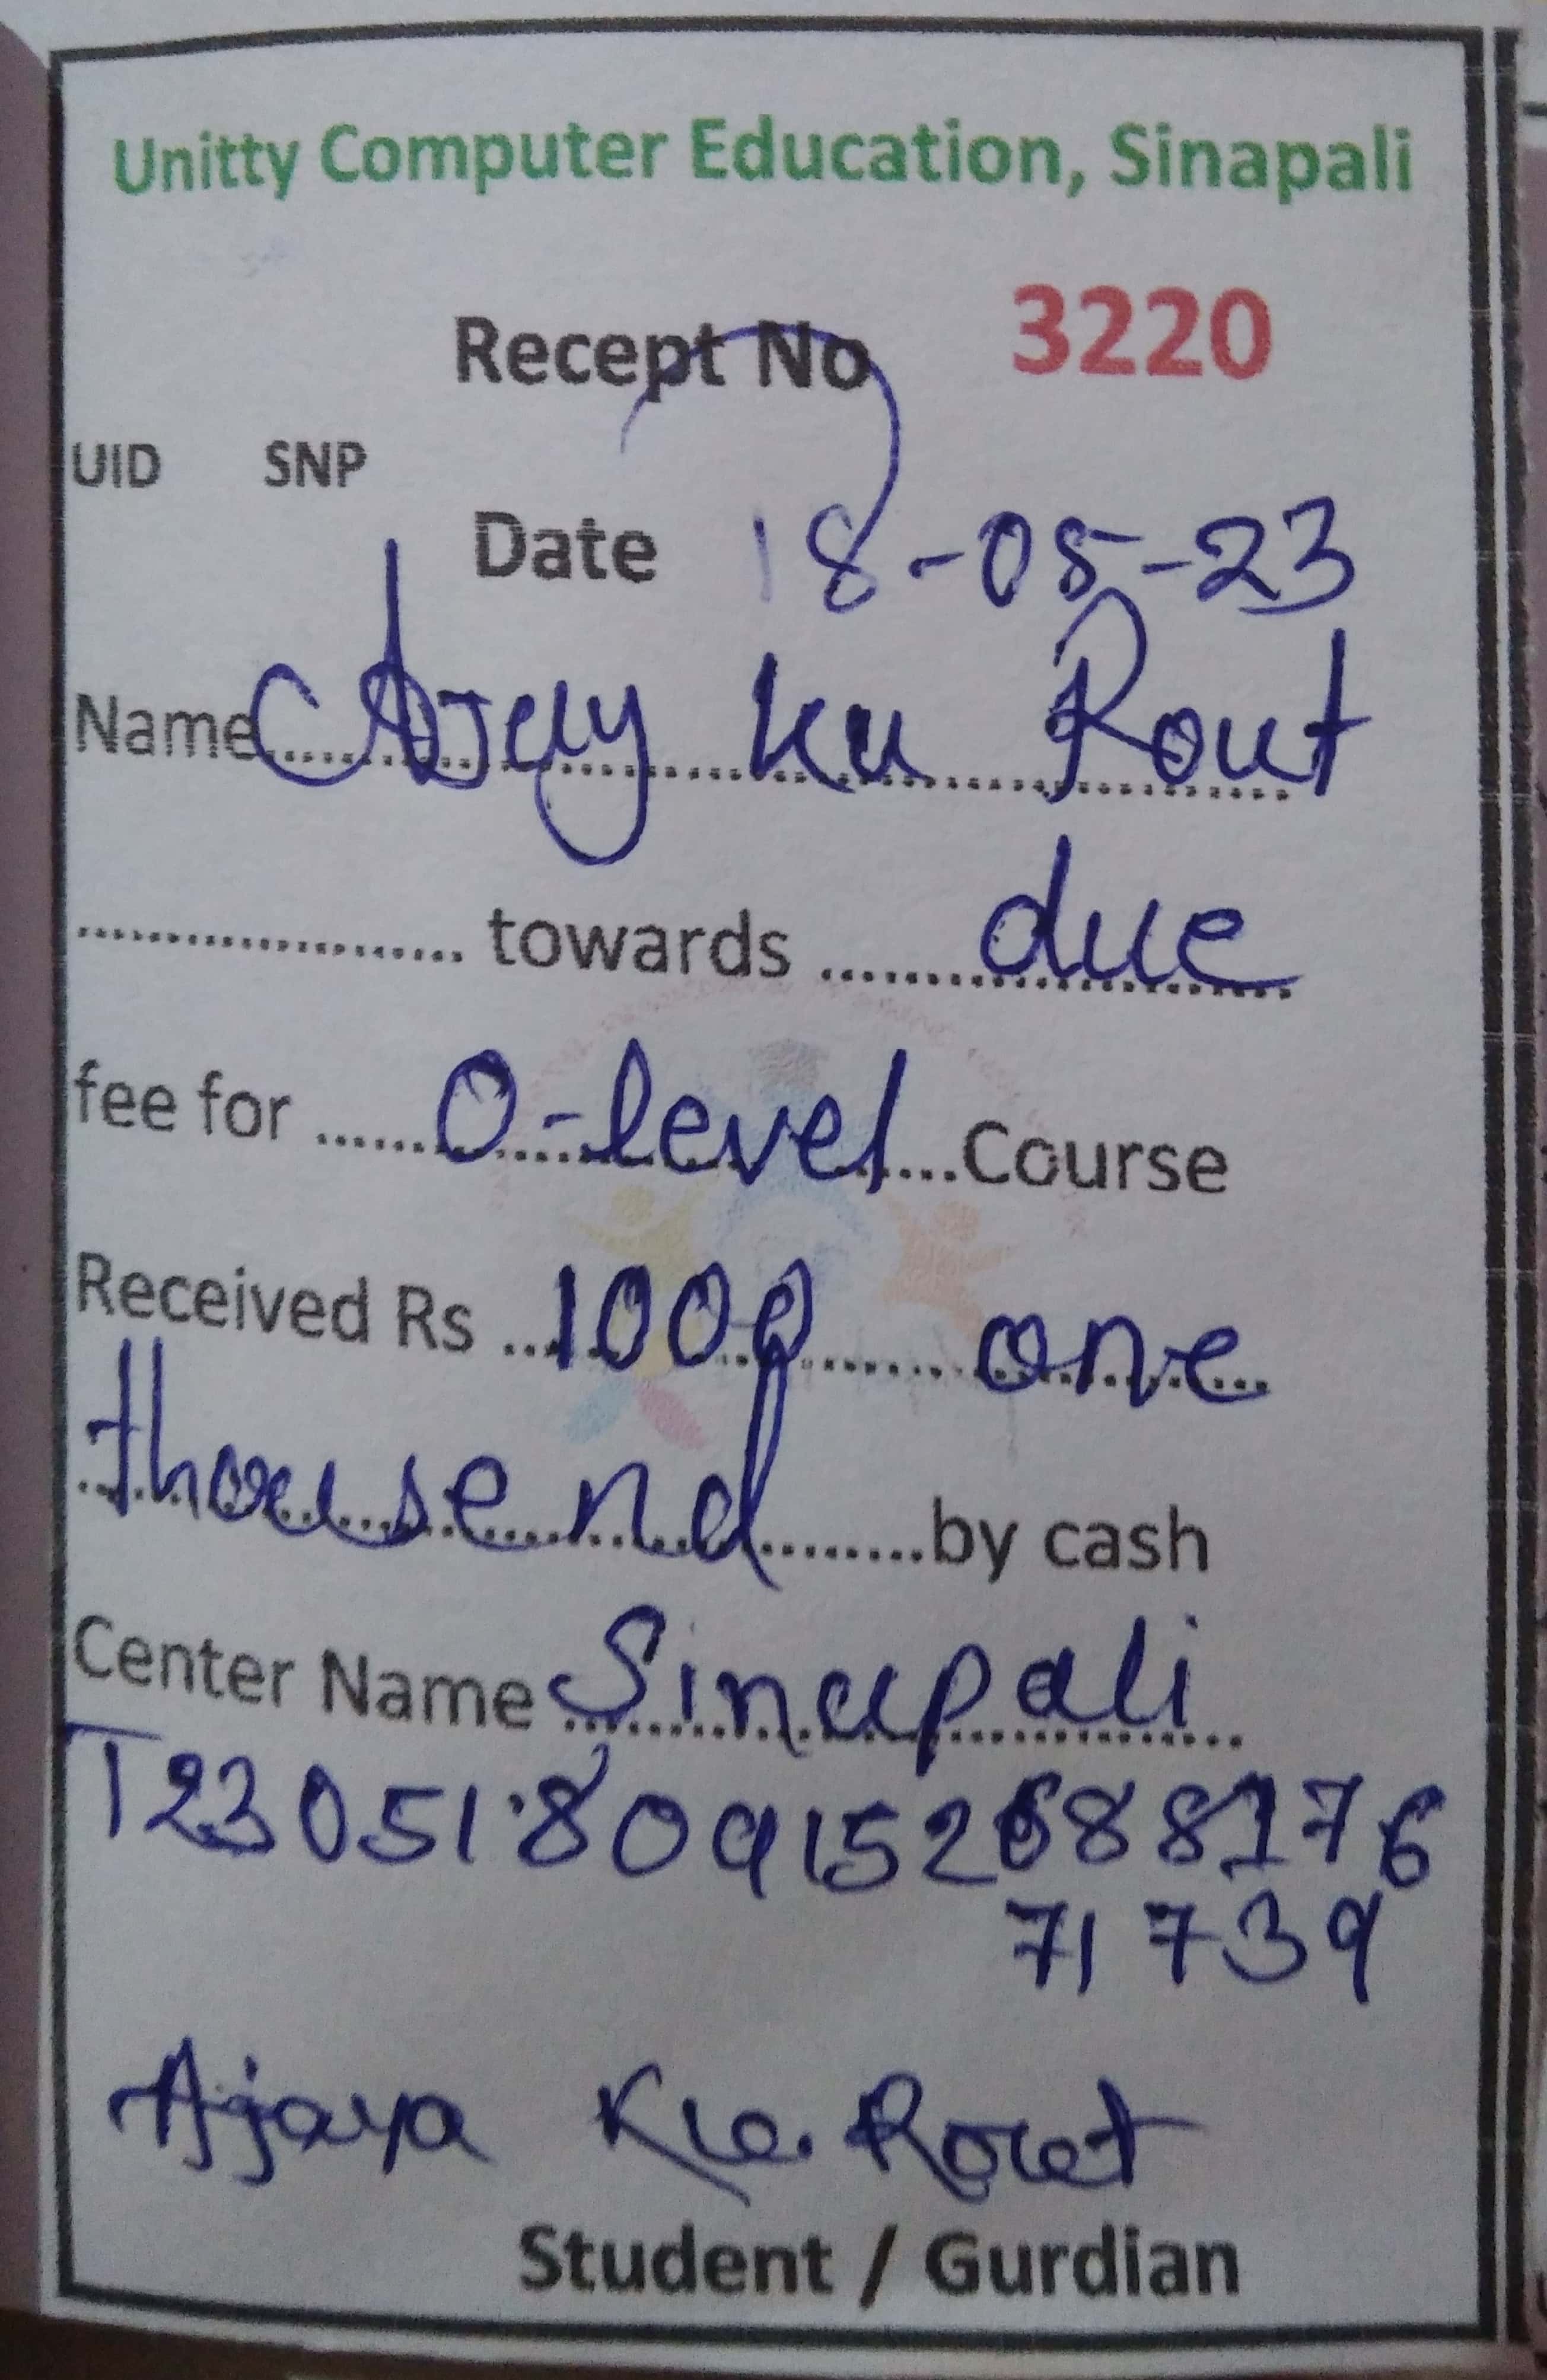 Unitty Computer Education, Sinapali
Recept No 3220
UID SNP
Date 18-05-23
Name Ajay ku Rout
.................... towards ...... due
fee for ...... O-level ...Course
Received Rs ...1000 ...... one
thousend .........by cash
Center Name Sinapali
T230518091526881776
71739
Ajaya Ku. Rout
Student / Gurdian